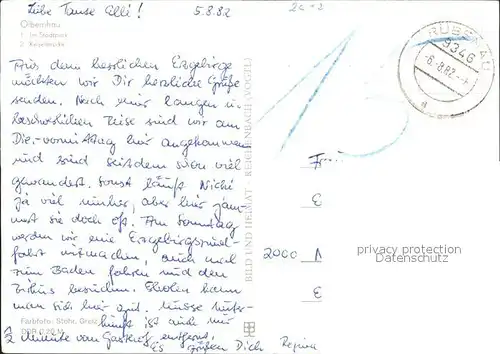 Liebe Tante Elli! 5.8.82
Olbernhau
1 Im Stadtpark
2
RÜBENAU
9346
-6.8.82-
Aus dem herrlichen Erzgebirge
möchten wir Dir herzliche Grüße
senden. Nach einer langen u.
beschwerlichen Reise sind wir am
Die.-vormittag hier angekommen
und sind seitdem schon viel
gewandert. Sonst läuft
ja viel, aber hier jam-
mert sie doch oft. Am Sonntag
werden wir eine Erzgebirgsrund-
fahrt mitmachen, auch mal
zum Baden fahren und den
Zirkus besuchen. Erholen kann
man sich hier gut. Unsere Unter-
kunft ist auch nur
2 Minuten vom Gasthof entfernt.
Es grüßen Dich Regina
BILD UND HEIMAT REICHENBACH (VOGTL)
Farbfoto: Stohr,
DDR 0,20 M
Frau
E
2000 N
3
privacy protection
Datenschutz